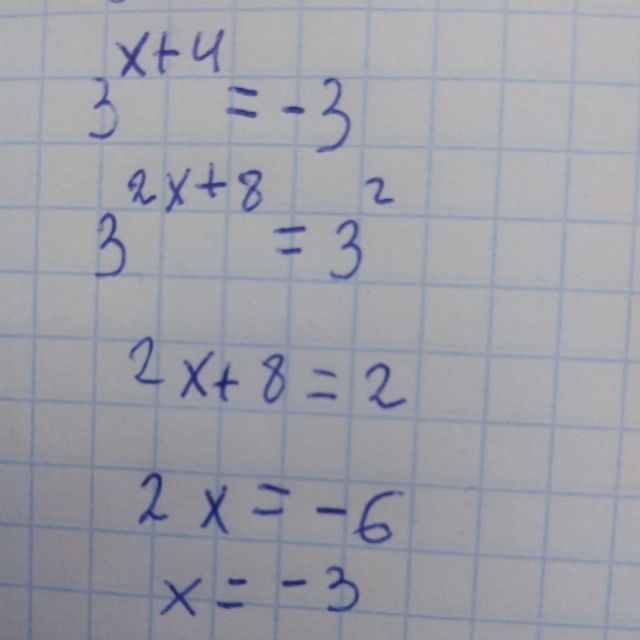 3^{x+4} = -3
3^{2x+8} = 3^2
2x+8=2
2x=-6
x=-3